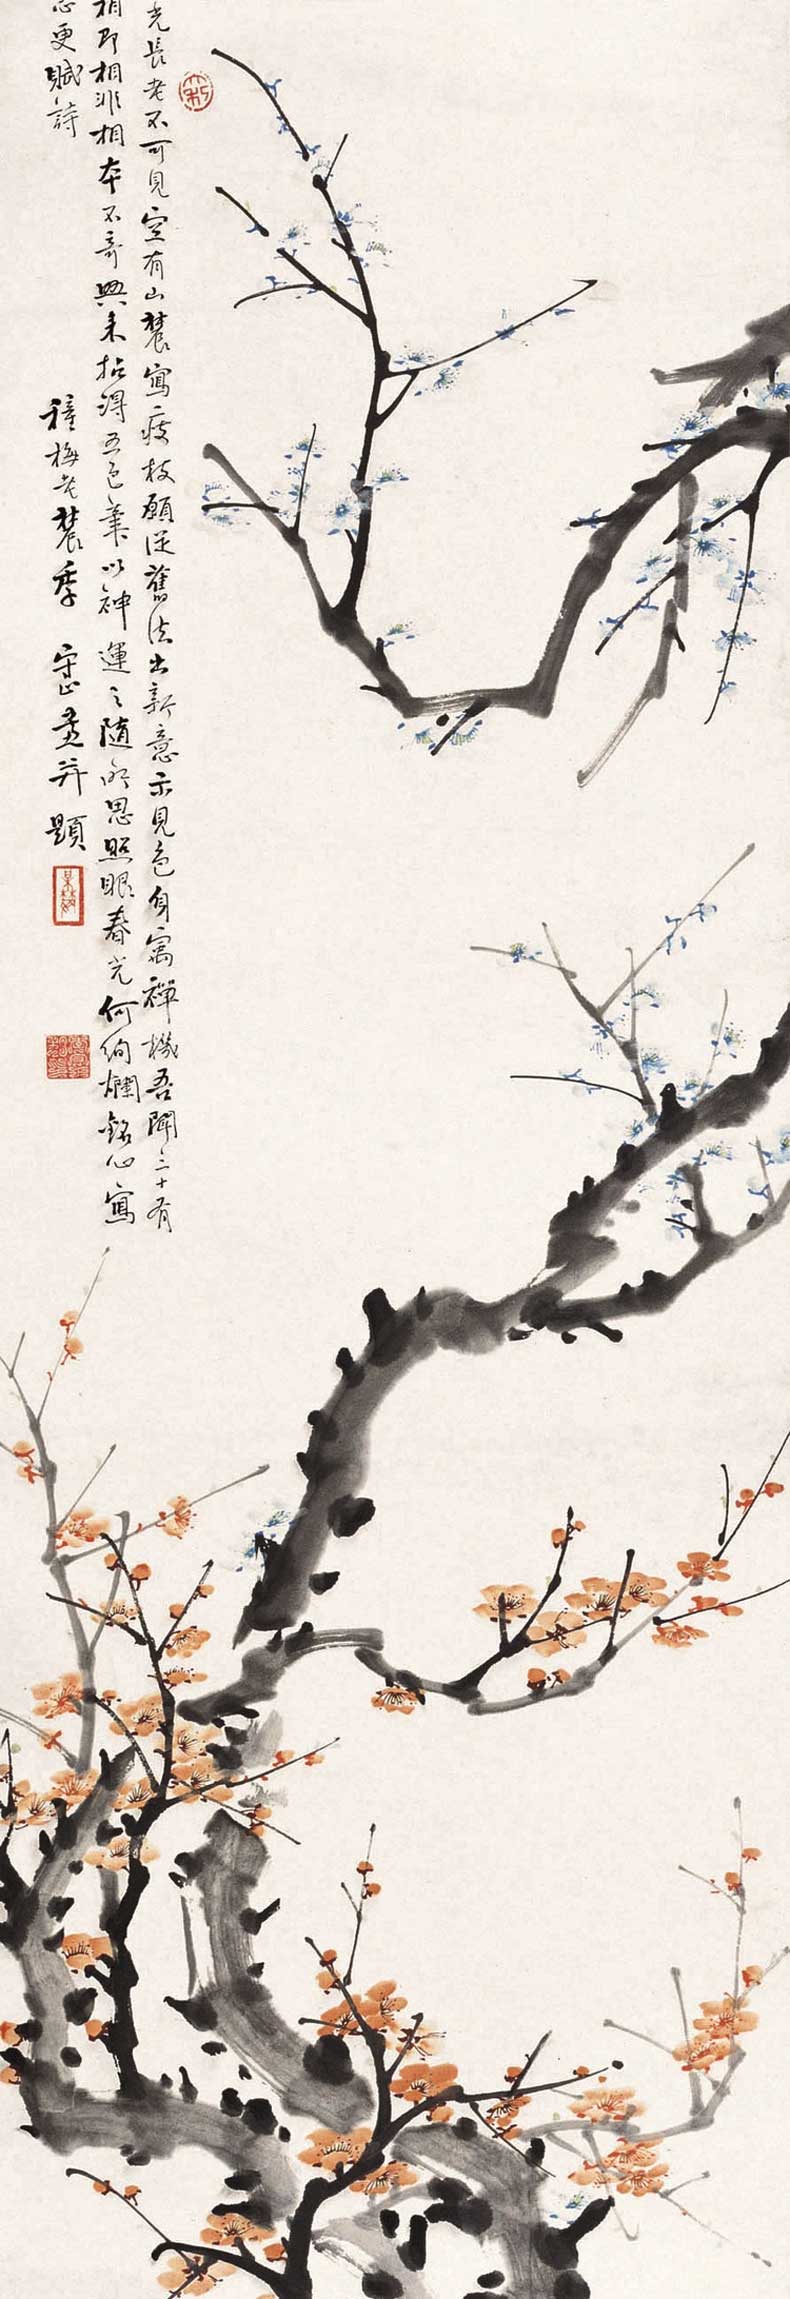 光長老不可見空有山農寫疲枝願從舊法出新意示見色身寓禪機吾聞三十有
相即相非相本不奇興來拈得五色筆以神運之隨所思照眼春光何絢爛銘心寫
更賦詩
種梅老農季守正畫并題